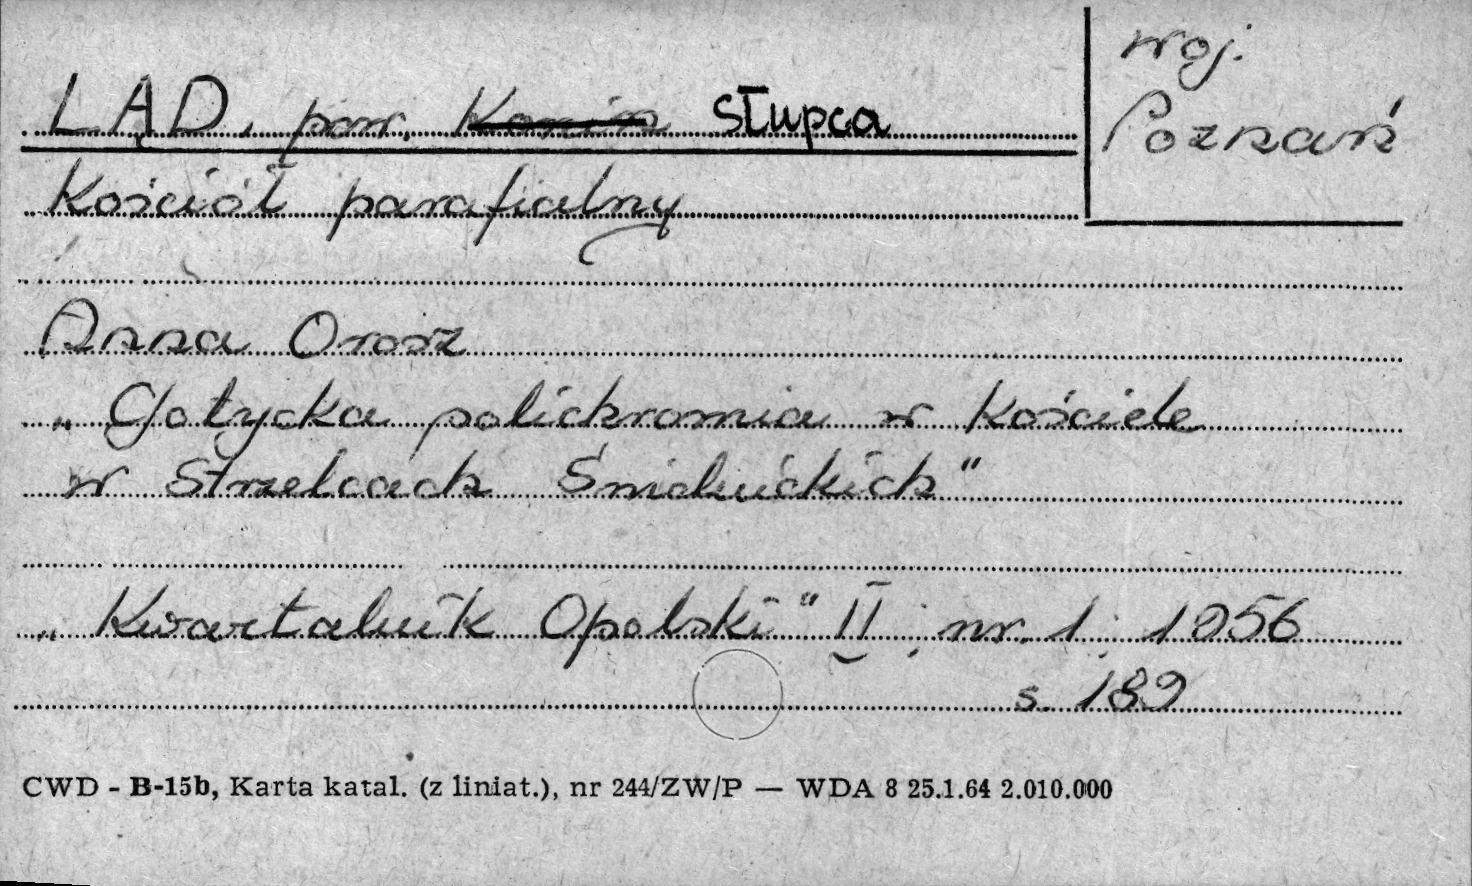 LĄD, pow. Konin Słupca
woj.
Poznań
Kościół parafialny
Anna Orosz
„Gotycka polichromia w Kościele
w Strzelcach Śmielnickich"
„Kwartalnik Opolski" II; nr. 1; 1956
s. 189
CWD - B-15b, Karta katal. (z liniat.), nr 244/ZW/P — WDA 8 25.1.64 2.010.000